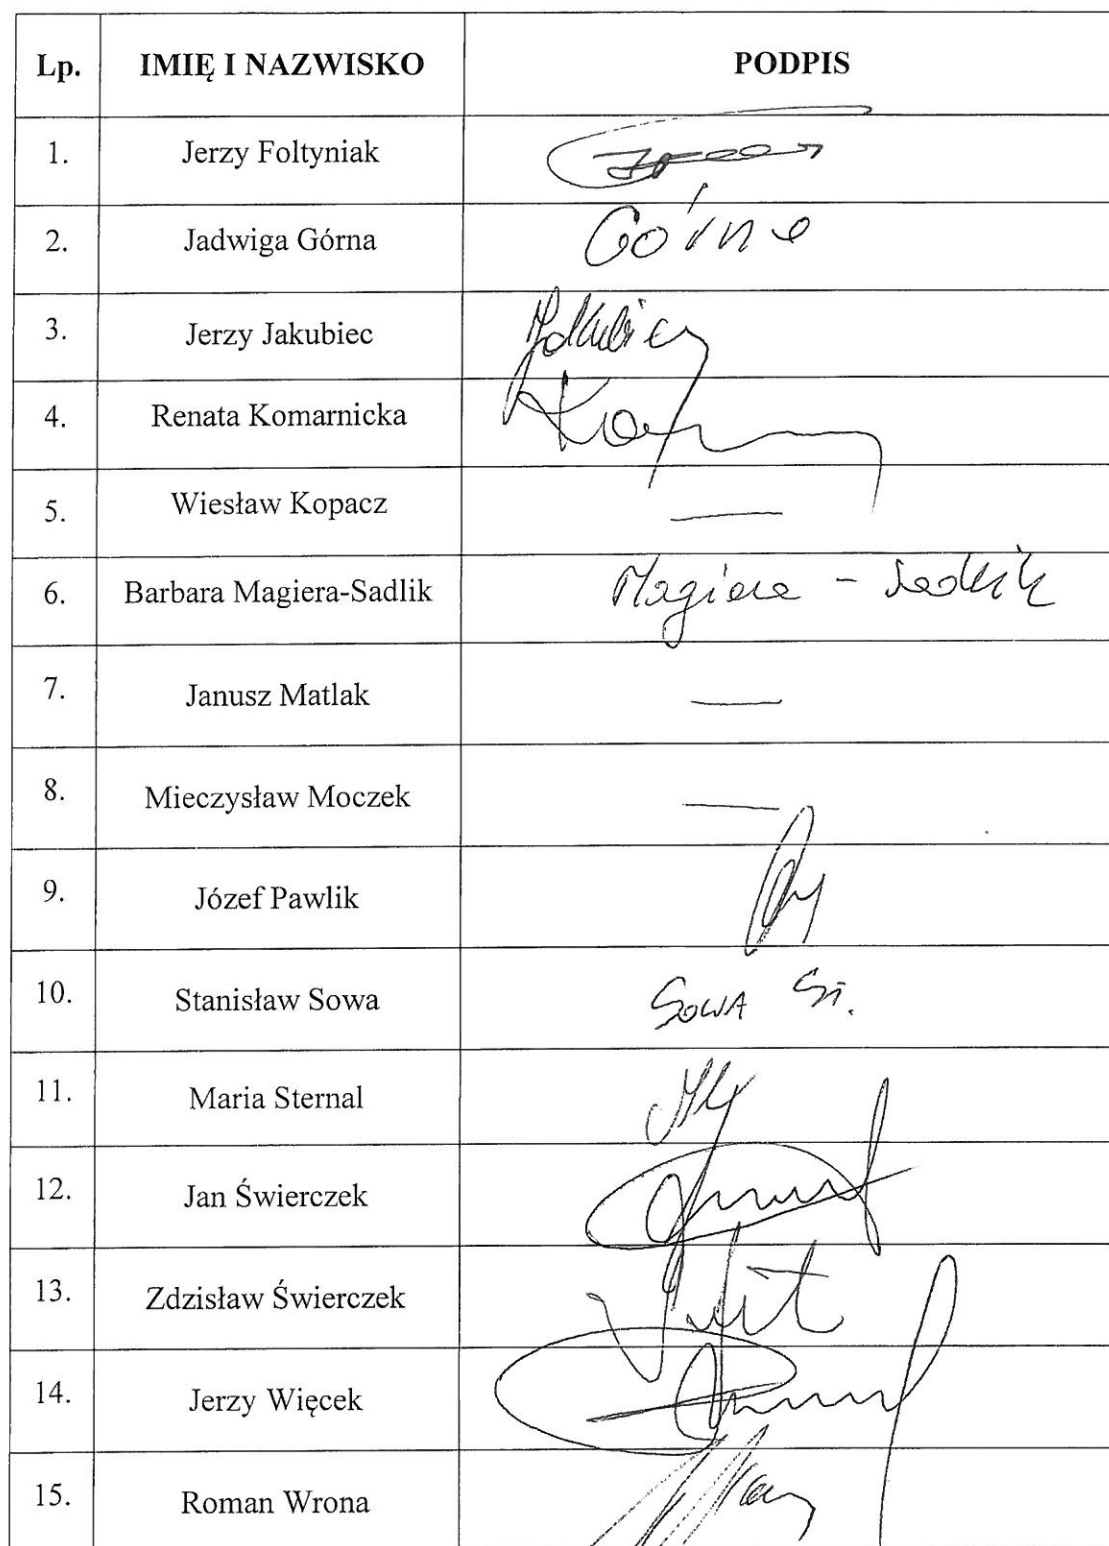 Lp. IMIĘ I NAZWISKO PODPIS
1. Jerzy Foltyniak
2. Jadwiga Górna Górna
3. Jerzy Jakubiec Jakubiec
4. Renata Komarnicka
5. Wiesław Kopacz —
6. Barbara Magiera-Sadlik Magiera - Sadlik
7. Janusz Matlak —
8. Mieczysław Moczek —
9. Józef Pawlik
10. Stanisław Sowa SOWA St.
11. Maria Sternal
12. Jan Świerczek
13. Zdzisław Świerczek
14. Jerzy Więcek
15. Roman Wrona